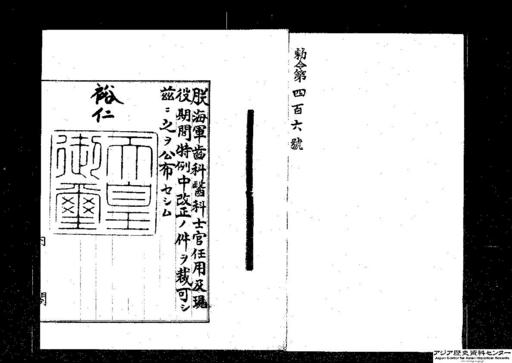 勅令第四百六號
朕海軍齒科醫科士官任用及現
役期間特例中改正ノ件ヲ裁可シ
茲ニ之ヲ公布セシム
裕仁
天皇
御璽
内閣
アジア歴史資料センター
Japan Center for Asian Historical Records